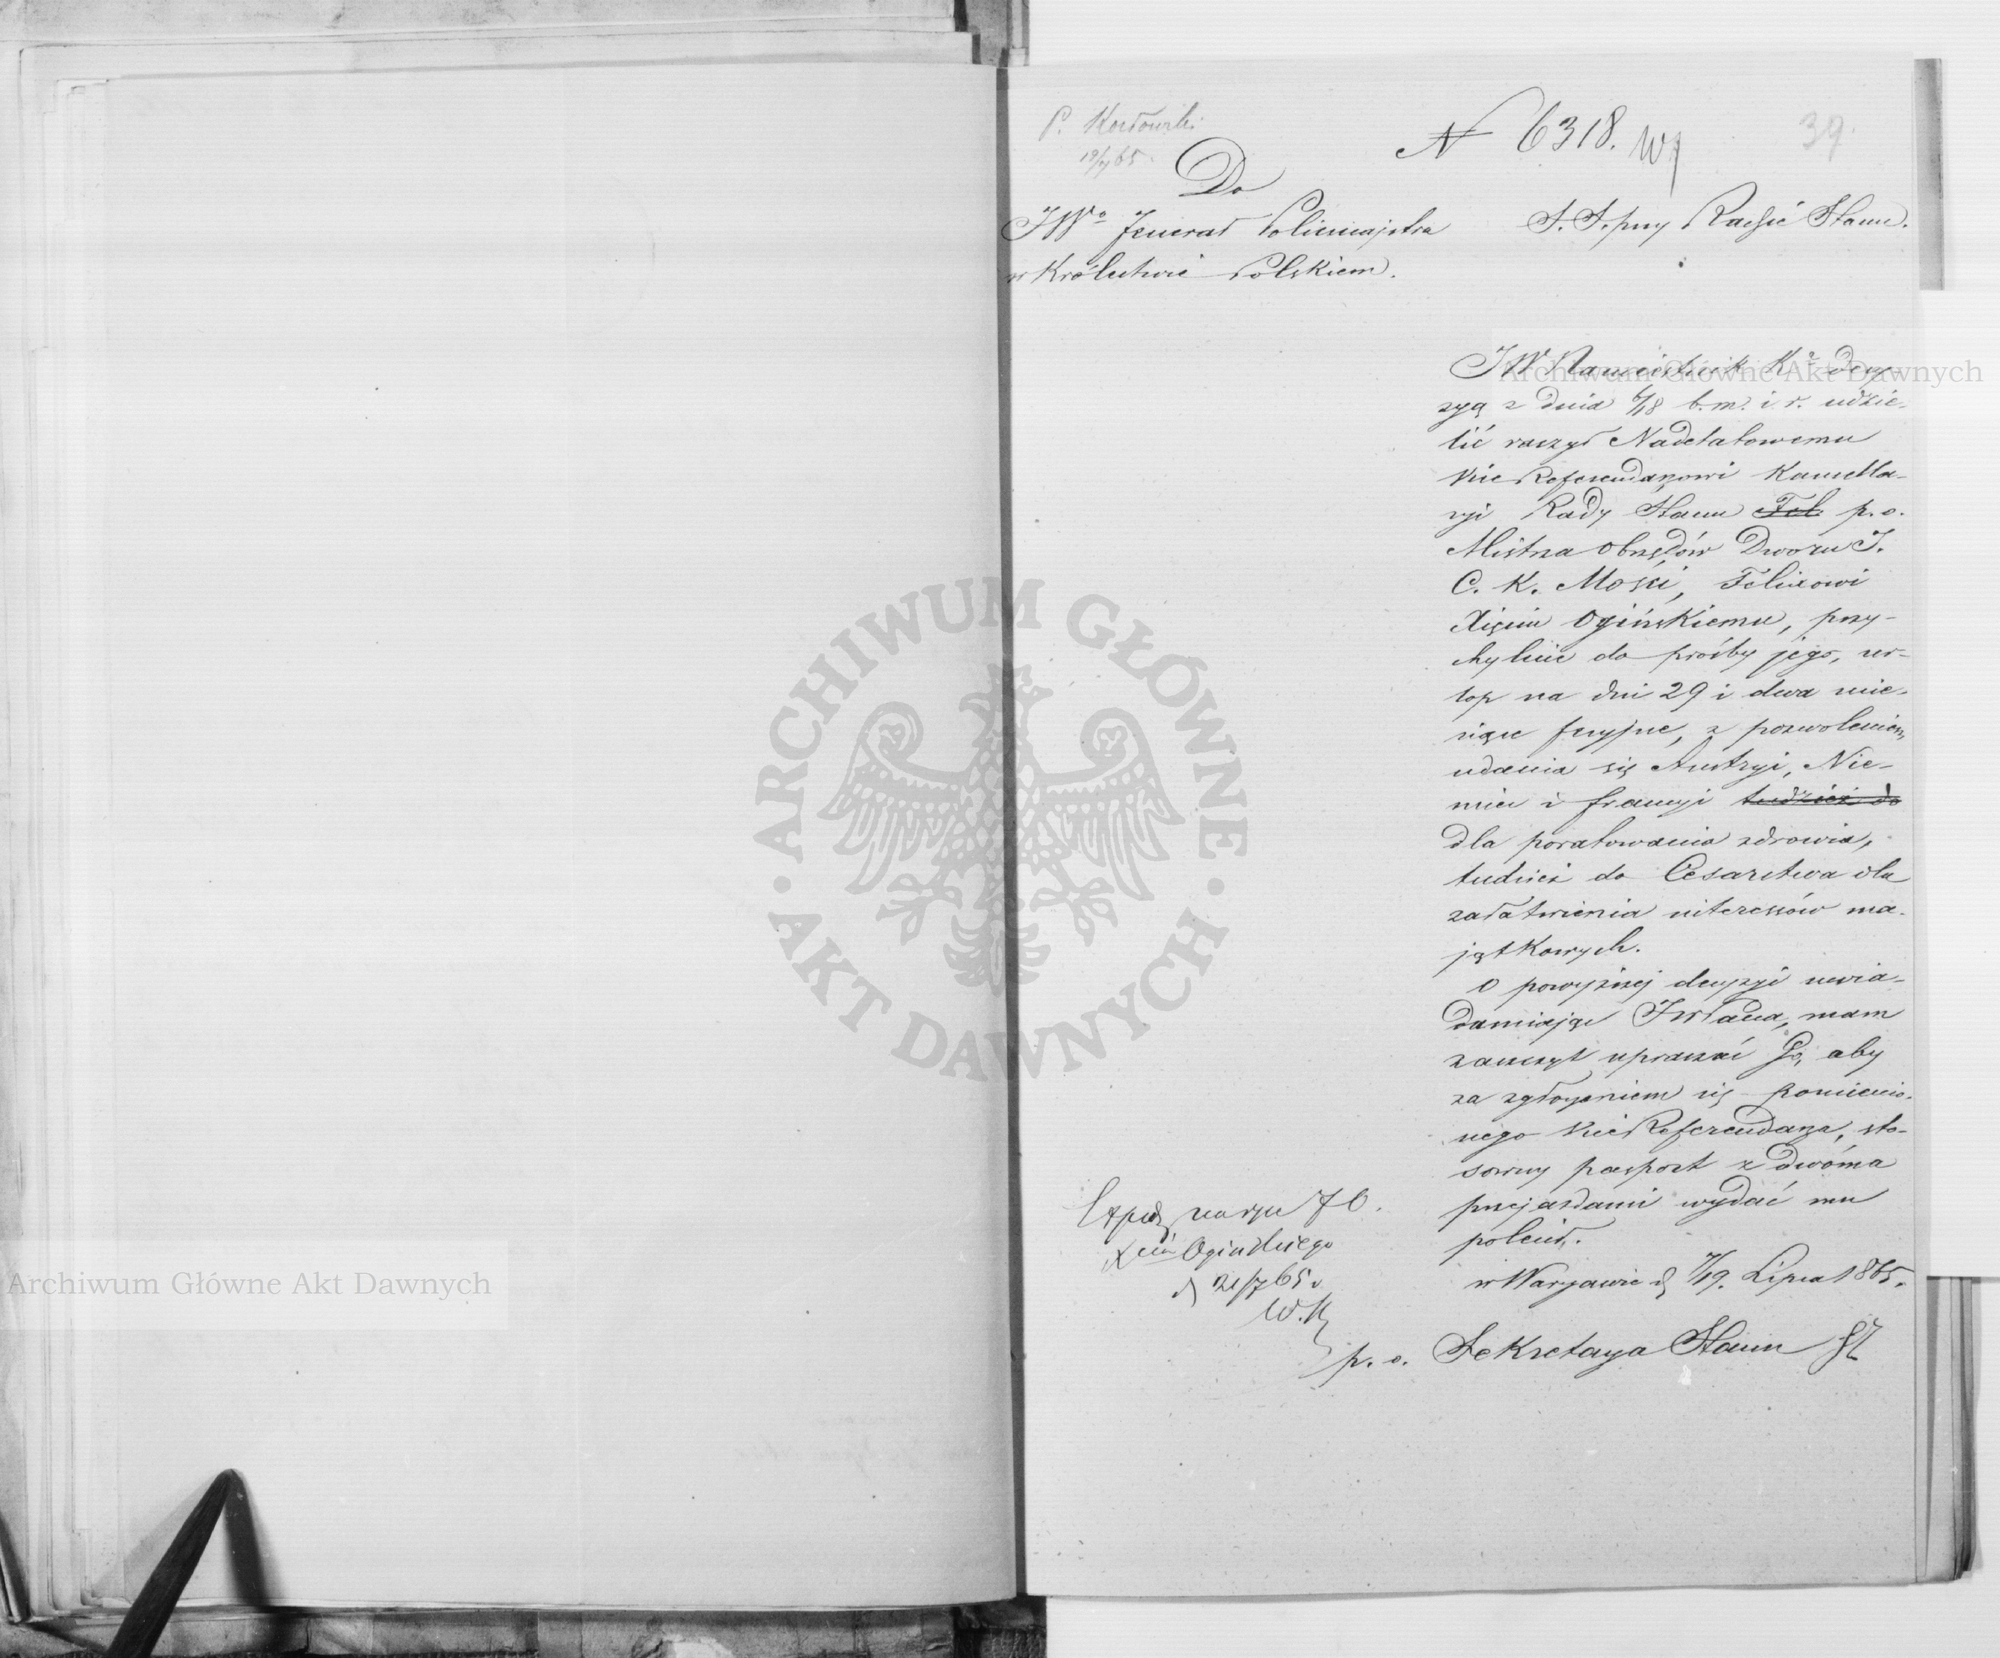 P. Kozłowski
19/7 65.
N 6318.
39.
Do
JWo Jenerał Policmajstra
w Królestwie Polskiem.
S. S. przy Radzie Stanu.
JW Namiestnik Ks decy-
zyą z dnia 6/18 b.m. i r. udzie-
lić raczył Nadetatowemu
Vice Referendarzowi Kancella-
ryi Rady Stanu Fel p.o.
Mistrza Obrzędów Dworu J.
C. K. Mości, Felixowi
Xięciu Ogińskiemu, przy-
chylnie do prośby jego, ur-
lop na dni 29 i dwa mie-
siące feryjne, z pozwoleniem
udania się Austryi, Nie-
miec i francyi tudzież do
dla poratowania zdrowia,
tudzież do Cesarstwa dla
załatwienia interessów ma-
jątkowych.
O powyższej decyzyi uwia-
damiając JWPana, mam
zaszczyt upraszać Go, aby
za zgłoszeniem się pomienio-
nego Vice Referendarza, sto-
sowny pasport z dwóma
przejazdami wydać mu
polecił.
w Warszawie d 7/19. Lipca 1865.
p. o. Sekretarza Stanu
Exped na ręce JO.
Xcia Ogińskiego
d 21/7 65 r
W.K.
ARCHIWUM GŁÓWNE
AKT DAWNYCH
Archiwum Główne Akt Dawnych
Archiwum Główne Akt Dawnych